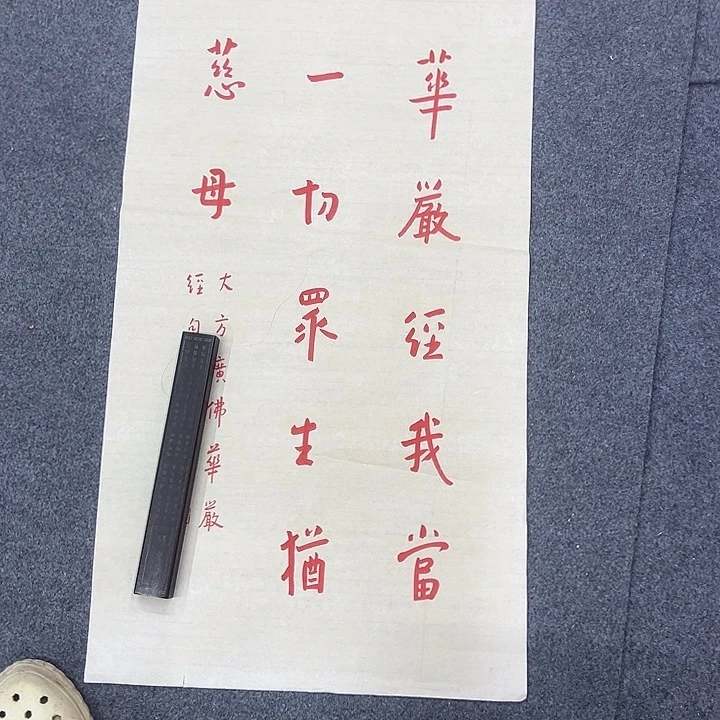 華嚴經我當
一切眾生猶
慈母
大方廣佛華嚴
經句